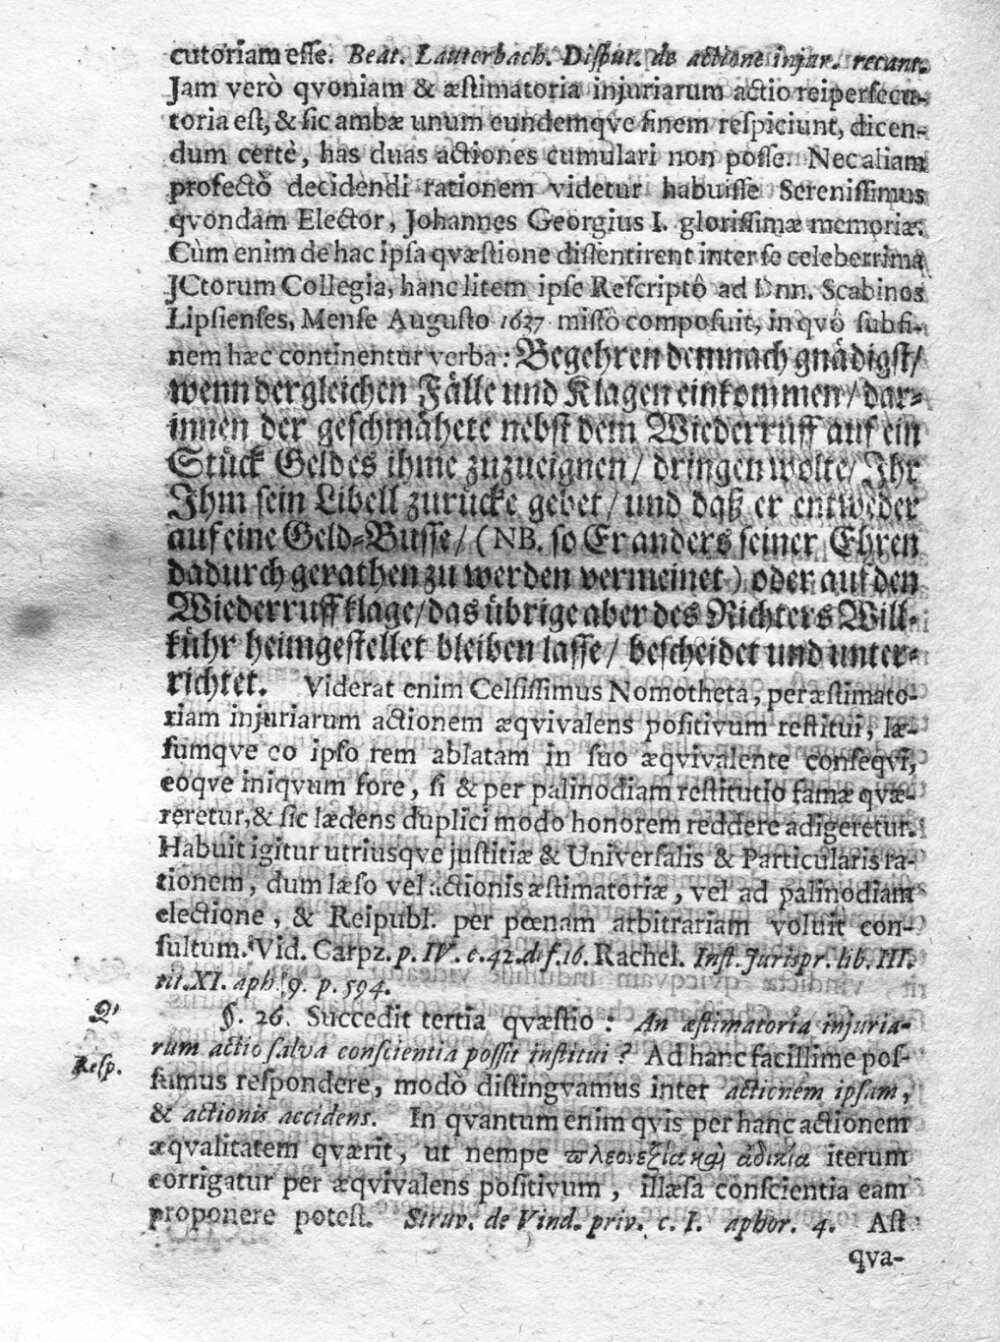 cutoriam esse. Beat. Lauterbach. Disput. de actione injur. recant.
Jam verò qvoniam & æstimatoria injuriarum actio reipersecu-
toria est, & sic ambæ unum eundemqve finem respiciunt, dicen-
dum certè, has duas actiones cumulari non posse. Nec aliam
profectò decidendi rationem videtur habuisse Serenissimus
qvondam Elector, Johannes Georgius I. glorissimæ memoriæ.
Cùm enim de hac ipsa qvæstione dissentirent inter se celeberrima
JCtorum Collegia, hanc litem ipse Rescriptô ad Dnn. Scabinos
Lipsienses, Mense Augusto 1637 missô composuit, in qvô sub fi-
nem hæc continentur verba: Begehren demnach gnädigst/
wenn dergleichen Fälle und Klagen einkommen/ dar-
innen der geschmähete nebst dem Wiederruff auf ein
Stück Geldes ihme zuzueignen/ dringen wolte/ Ihr
Ihm sein Libell zurücke gebet/ und daß er entweder
auf eine Geld-Busse/ (NB. so Er anders seiner Ehren
dadurch gerathen zu werden vermeinet) oder auf den
Wiederruff klage/ das übrige aber des Richters Will-
kühr heimgestellet bleiben lasse/ bescheidet und unter-
richtet. Viderat enim Celsissimus Nomotheta, per æstimato-
riam injuriarum actionem æqvivalens positivum restitui, læ-
sumqve eo ipso rem ablatam in suo æqvivalente conseqvi,
eoqve iniqvum fore, si & per palinodiam restitutio famæ qvæ-
reretur, & sic lædens duplici modo honorem reddere adigeretur.
Habuit igitur utriusqve justitiæ & Universalis & Particularis ra-
tionem, dum læso vel actionis æstimatoriæ, vel ad palinodiam
electione, & Reipubl. per pœnam arbitrariam voluit con-
sultum. Vid. Carpz. p. IV. c. 42. def. 16. Rachel. Inst. Jurispr. lib. III.
tit. XI. aph. 9. p. 594.
§. 26. Succedit tertia qvæstio: An æstimatoria injuria-
rum actio salva conscientia possit institui? Ad hanc facillime pos-
Resp.
sumus respondere, modò distingvamus inter actionem ipsam,
& actionis accidens. In qvantum enim qvis per hanc actionem
æqvalitatem qværit, ut nempe πλεονεξία καὶ ἀδικία iterum
corrigatur per æqvivalens positivum, illæsa conscientia eam
proponere potest. Struv. de Vind. priv. c. I. aphor. 4. Ast
qva-